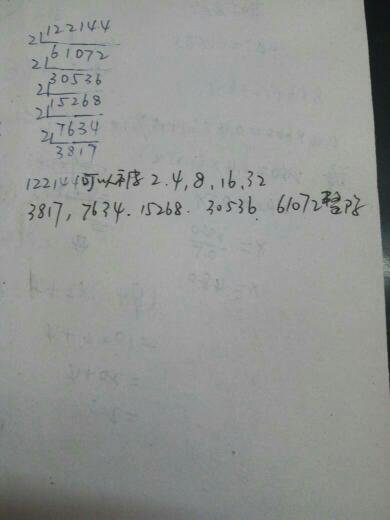 2 122144
2 61072
2 30536
2 15268
2 7634
3817
122144可以被 2.4,8,16,32
3817,7634.15268.30536.61072整除